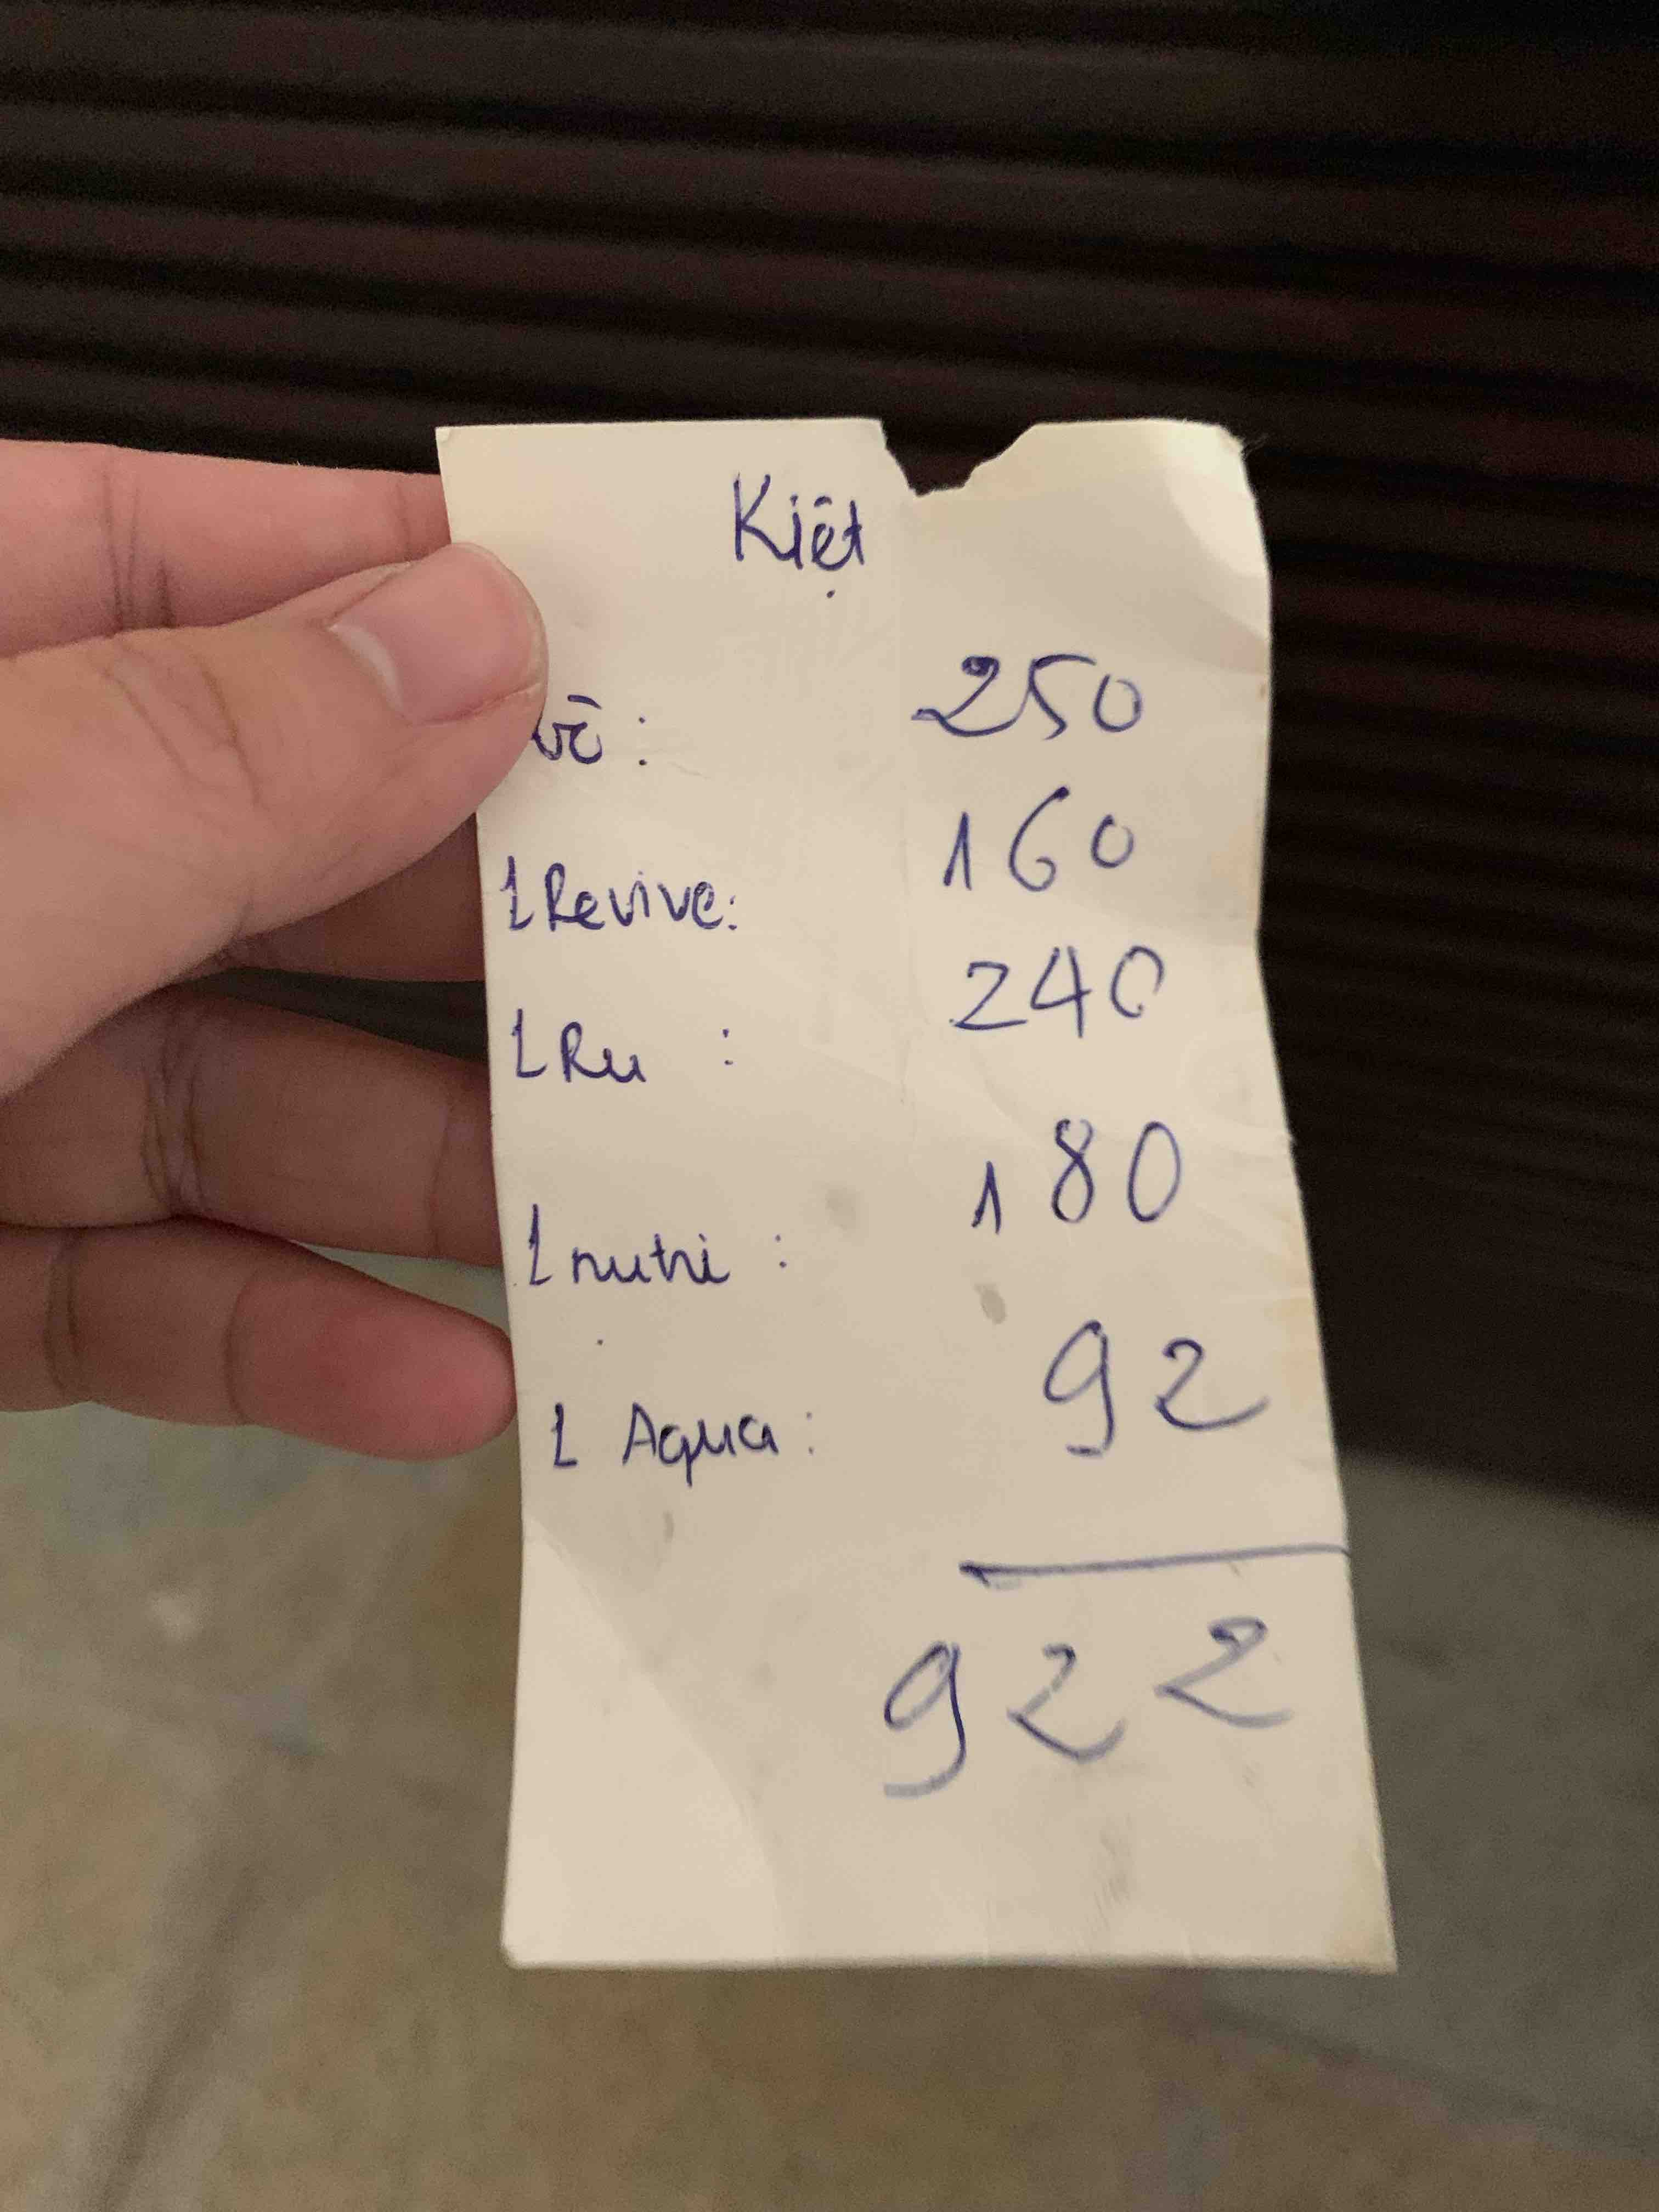 Kiệt
về: 250
1 Revive: 160
1 Ru : 240
1 nutri : 180
1 Aqua: 92
922